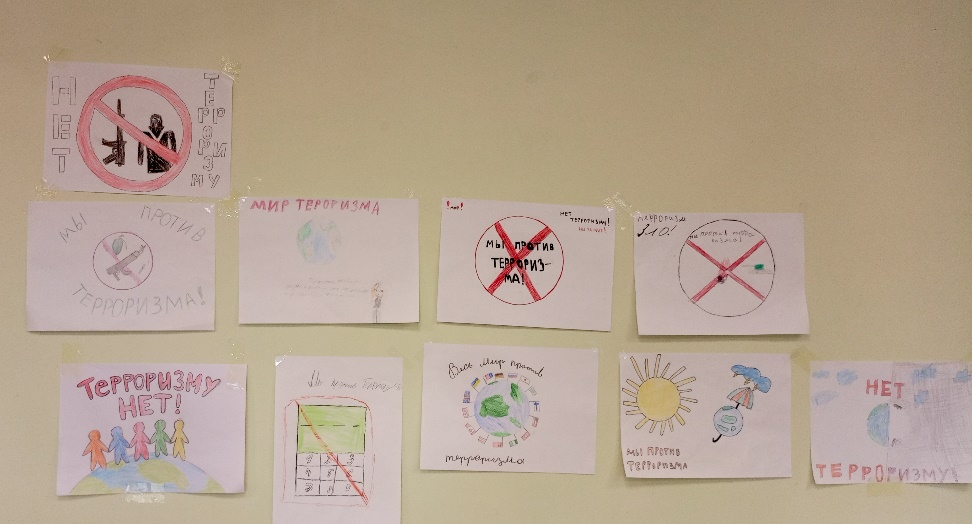 НЕТ
ТЕРРОРИЗМУ
МЫ ПРОТИВ
ТЕРРОРИЗМА!
МИР ТЕРОРИЗМА
МЫ ПРОТИВ
ТЕРРОРИЗ-
МА!
НЕТ
ТЕРРОРИЗМУ!
ТЕРРОРИЗМ
ЗЛО!
ТЕРРОРИЗМУ
НЕТ!
Весь мир против
терроризма
МЫ ПРОТИВ
ТЕРРОРИЗМА
НЕТ
ТЕРРОРИЗМУ!